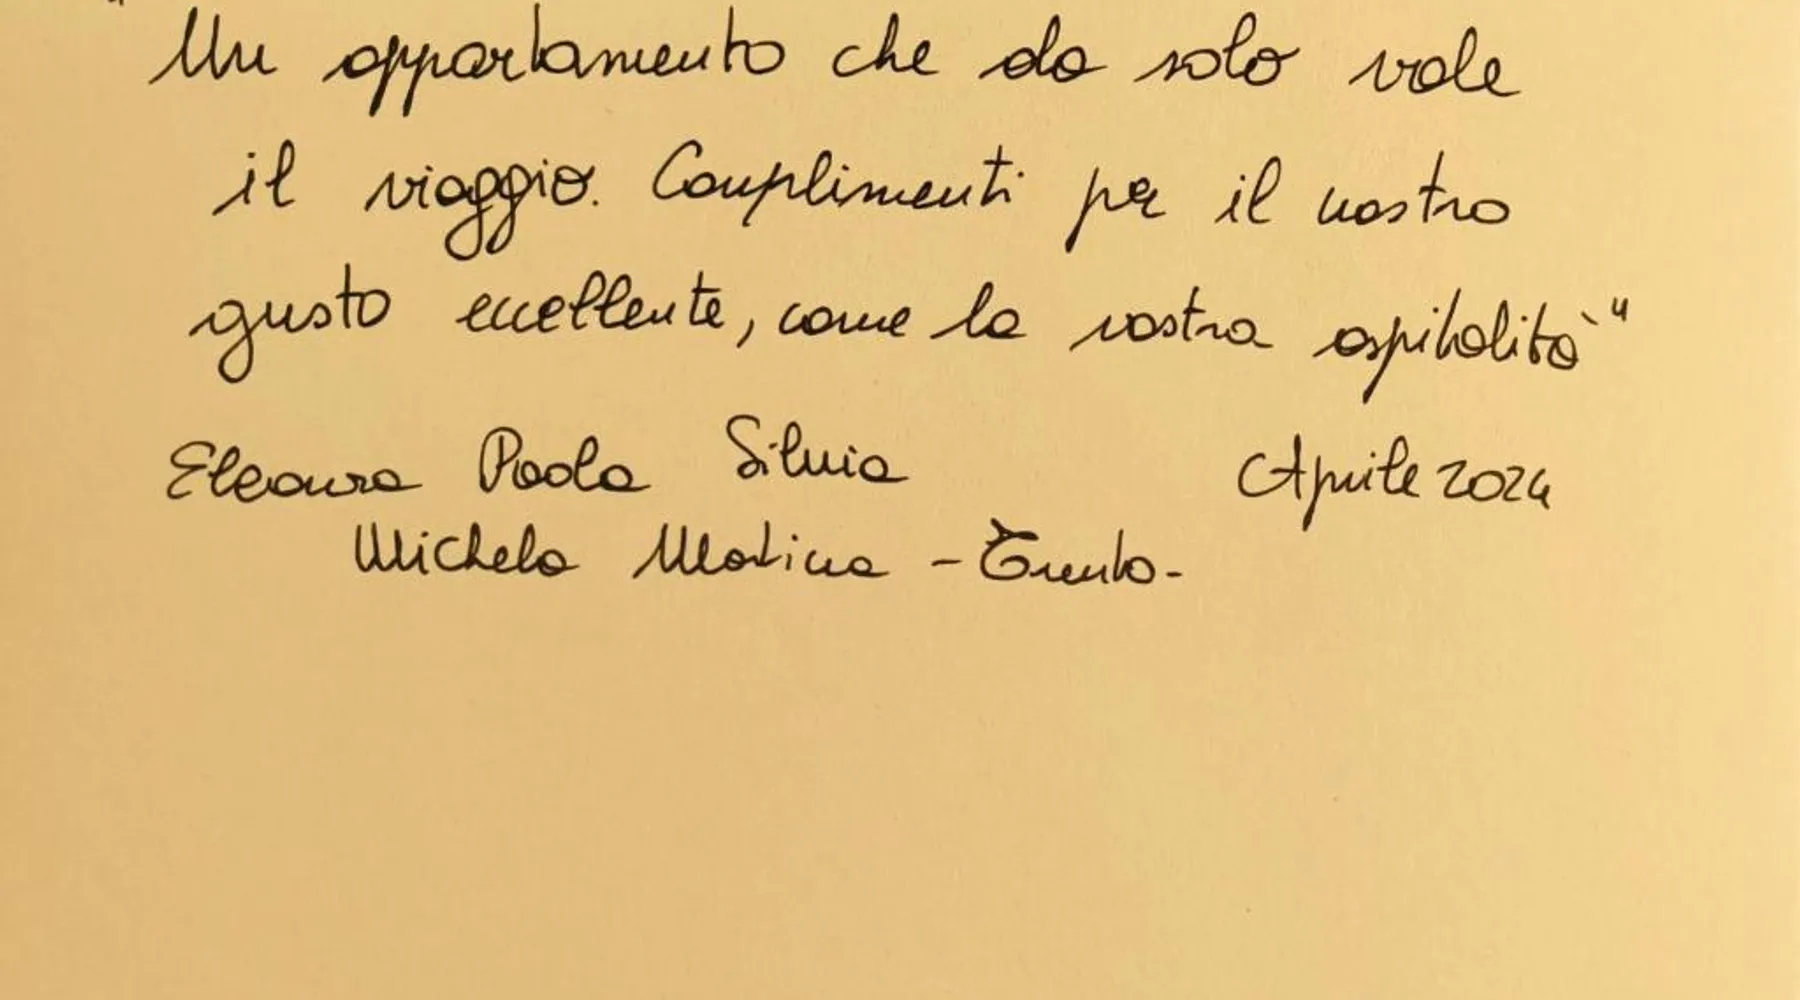 "Un appartamento che da solo vale
il viaggio. Complimenti per il vostro
gusto eccellente, come la vostra ospitalità"
Eleonora Paola Silvia Aprile 2024
Michela Martina - Trento-